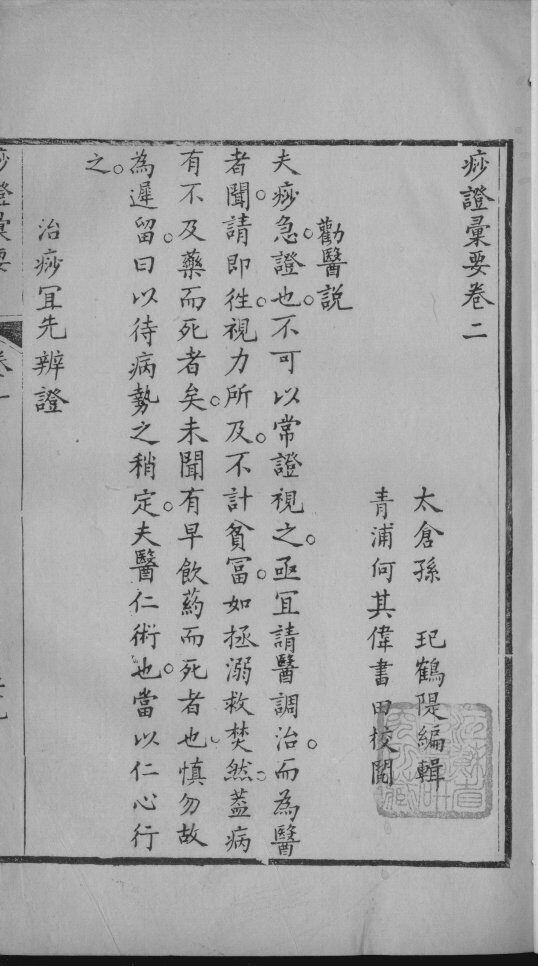 痧證彙要卷二
太倉孫　玘鶴隄編輯
青浦何其偉書田校閱
勸醫説
夫痧急證也不可以常證視之。亟冝請醫調治。而為醫
者聞。請即徃。視力所及。不計貧冨。如拯溺救焚然。葢病
有不及藥而死者矣。未聞有早飲葯而死者也慎勿故
為遲留。曰以待病勢之稍定。夫醫仁術也。當以仁心行
之。
治痧冝先辨證